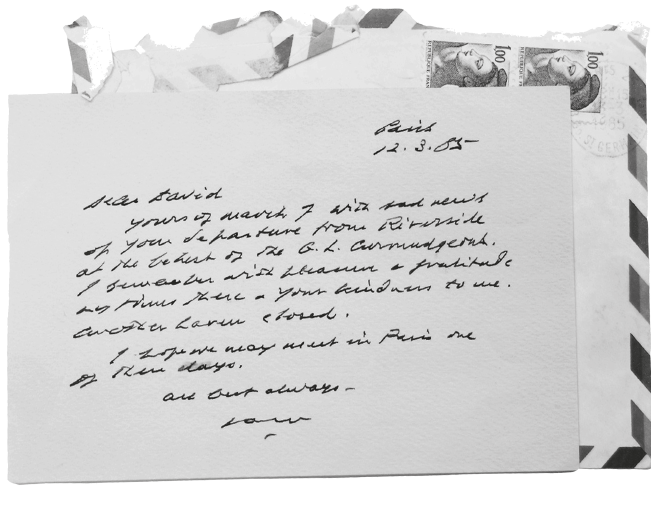 1,00
1,00
REPUBLIQUE
Paris
12.3.85
Dear David
Yours of March 7 with sad news
of your departure from Riverside
at the behest of the G.L. Curmudgeons.
I remember with pleasure & gratitude
my times there & your kindness to me.
Another haven closed.
I hope we may meet in Paris one
of these days.
All best always -
Sam